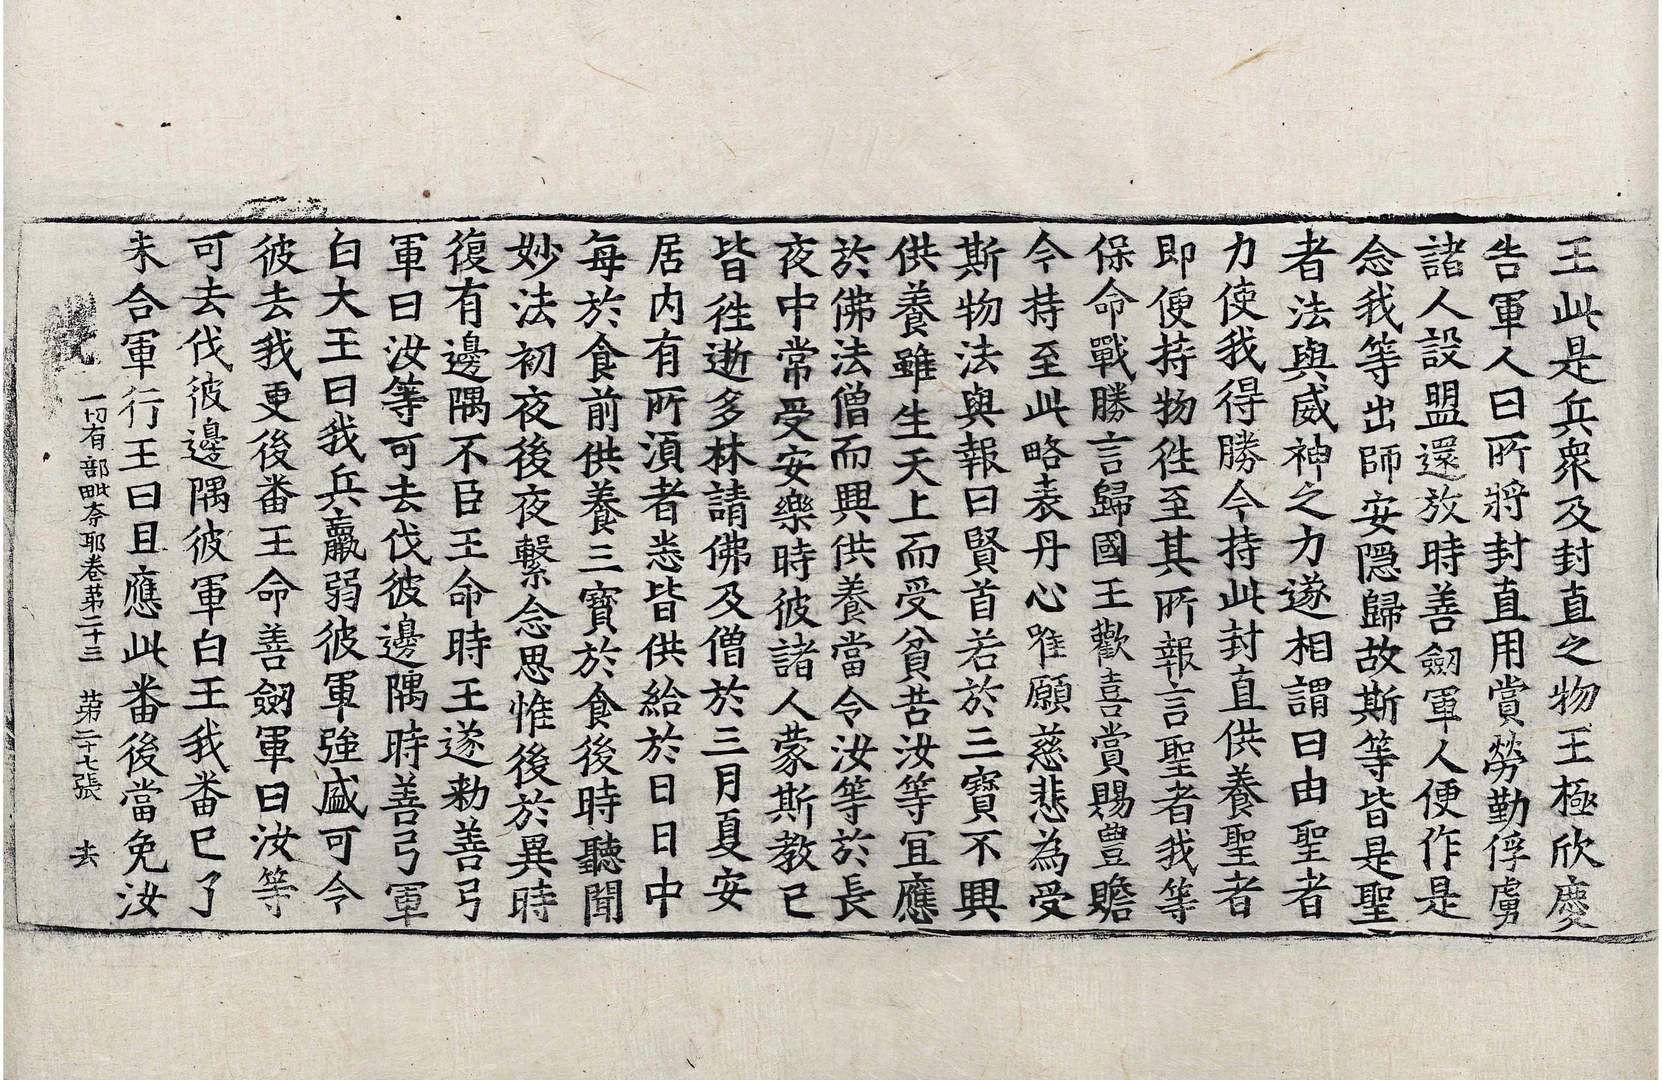 王此是兵衆及封直之物王極欣慶
告軍人曰所將封直用賞勞勤俘虜
諸人設盟還放時善劒軍人便作是
念我等出師安隱歸故斯等皆是聖
者法與威神之力遂相謂曰由聖者
力使我得勝今持此封直供養聖者
即便持物往至其所報言聖者我等
保命戰勝言歸國王歡喜賞賜豊贍
今持至此略表丹心唯願慈悲為受
斯物法與報曰賢首若於三寶不興
供養雖生天上而受貧苦汝等宜應
於佛法僧而興供養當令汝等於長
夜中常受安樂時彼諸人蒙斯教已
皆往逝多林請佛及僧於三月夏安
居内有所湏者悉皆供給於日日中
每於食前供養三寶於食後時聽聞
妙法初夜後夜繫念思惟後於異時
復有邊隅不臣王命時王遂勑善弓
軍曰汝等可去伐彼邊隅時善弓軍
白大王曰我兵羸弱彼軍強盛可令
彼去我更後番王命善劒軍曰汝等
可去伐彼邊隅彼軍白王我番已了
未合軍行王曰且應此番後當免汝
一切有部毗奈耶卷第二十三 第二十七張 去